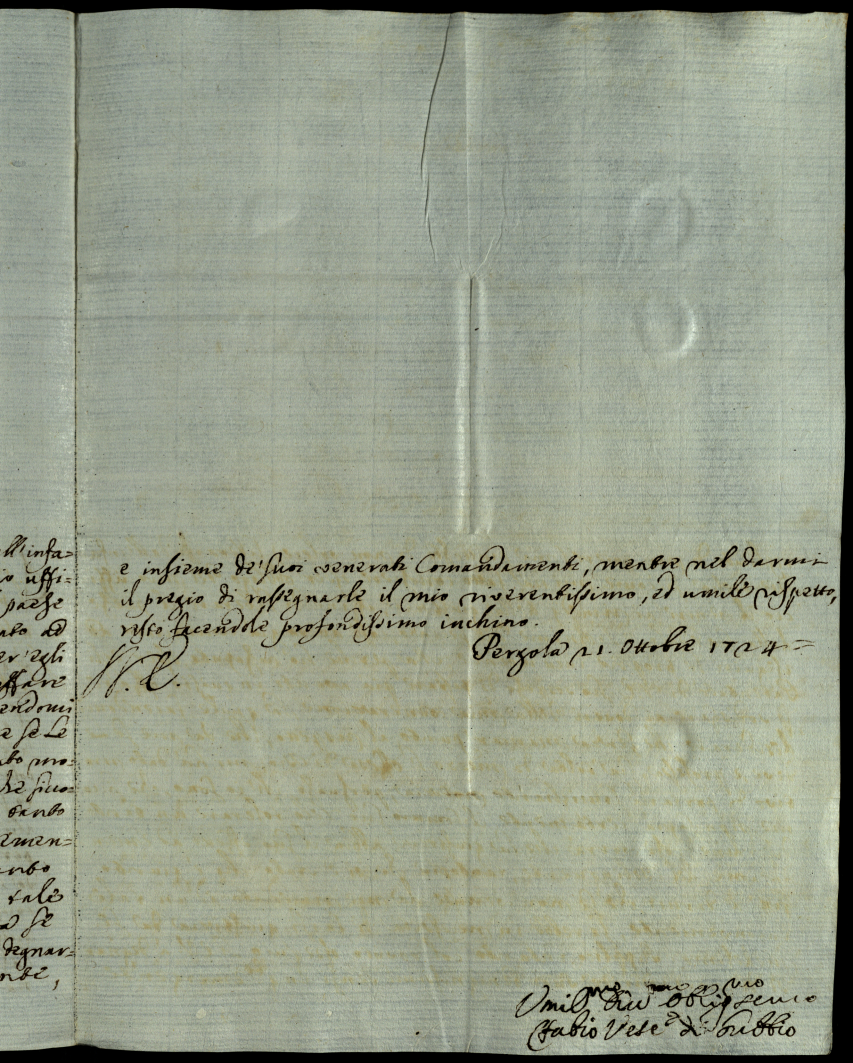 all'infa=
io uffi=
paese
ato ad
er'egli
affare
endomi
e se Le
ato mo=
che sino=
tanto
emen=
anto
tale
se
degnar=
nte,
e insieme de' suoi venerati Comandamenti, mentre nel darmi
il pregio di rassegnarle il mio riverentissimo, ed umile rispetto,
resto facendole profondissimo inchino.
Pergola 21. Ottobre 1724=
Umil.mo Obblig.mo
Fabio Vesc.o di Gubbio